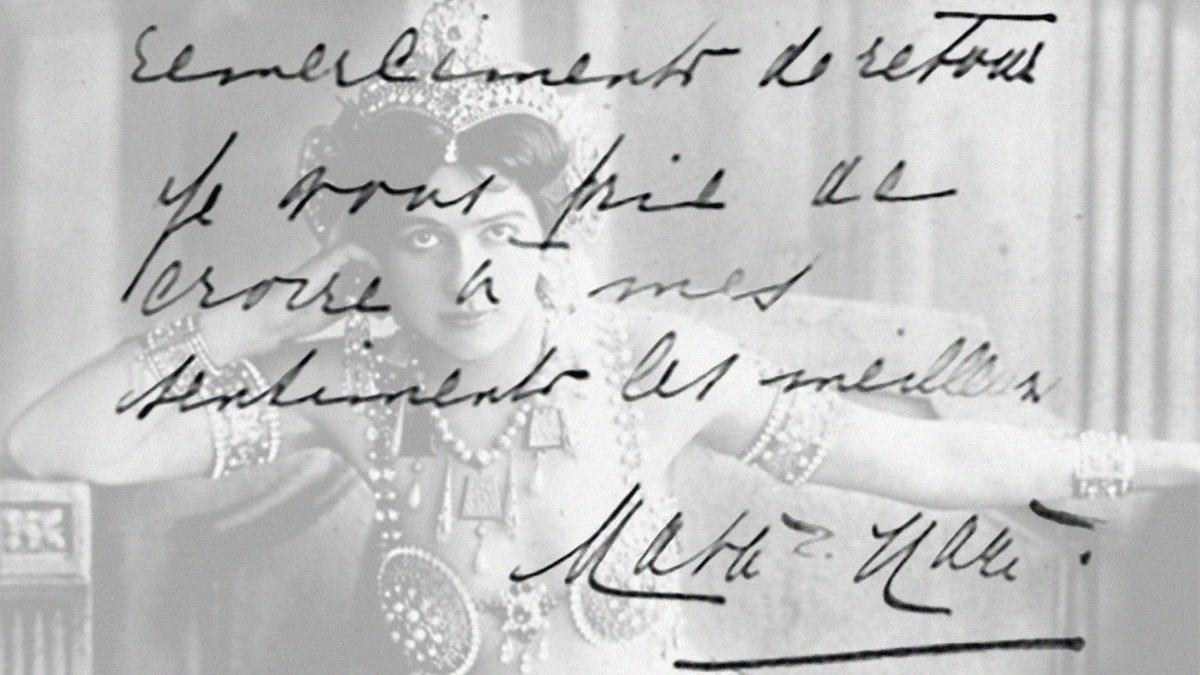 remerciments de retour
je vous prie de
croire à mes
sentiments les meilleurs
Mata Hari.